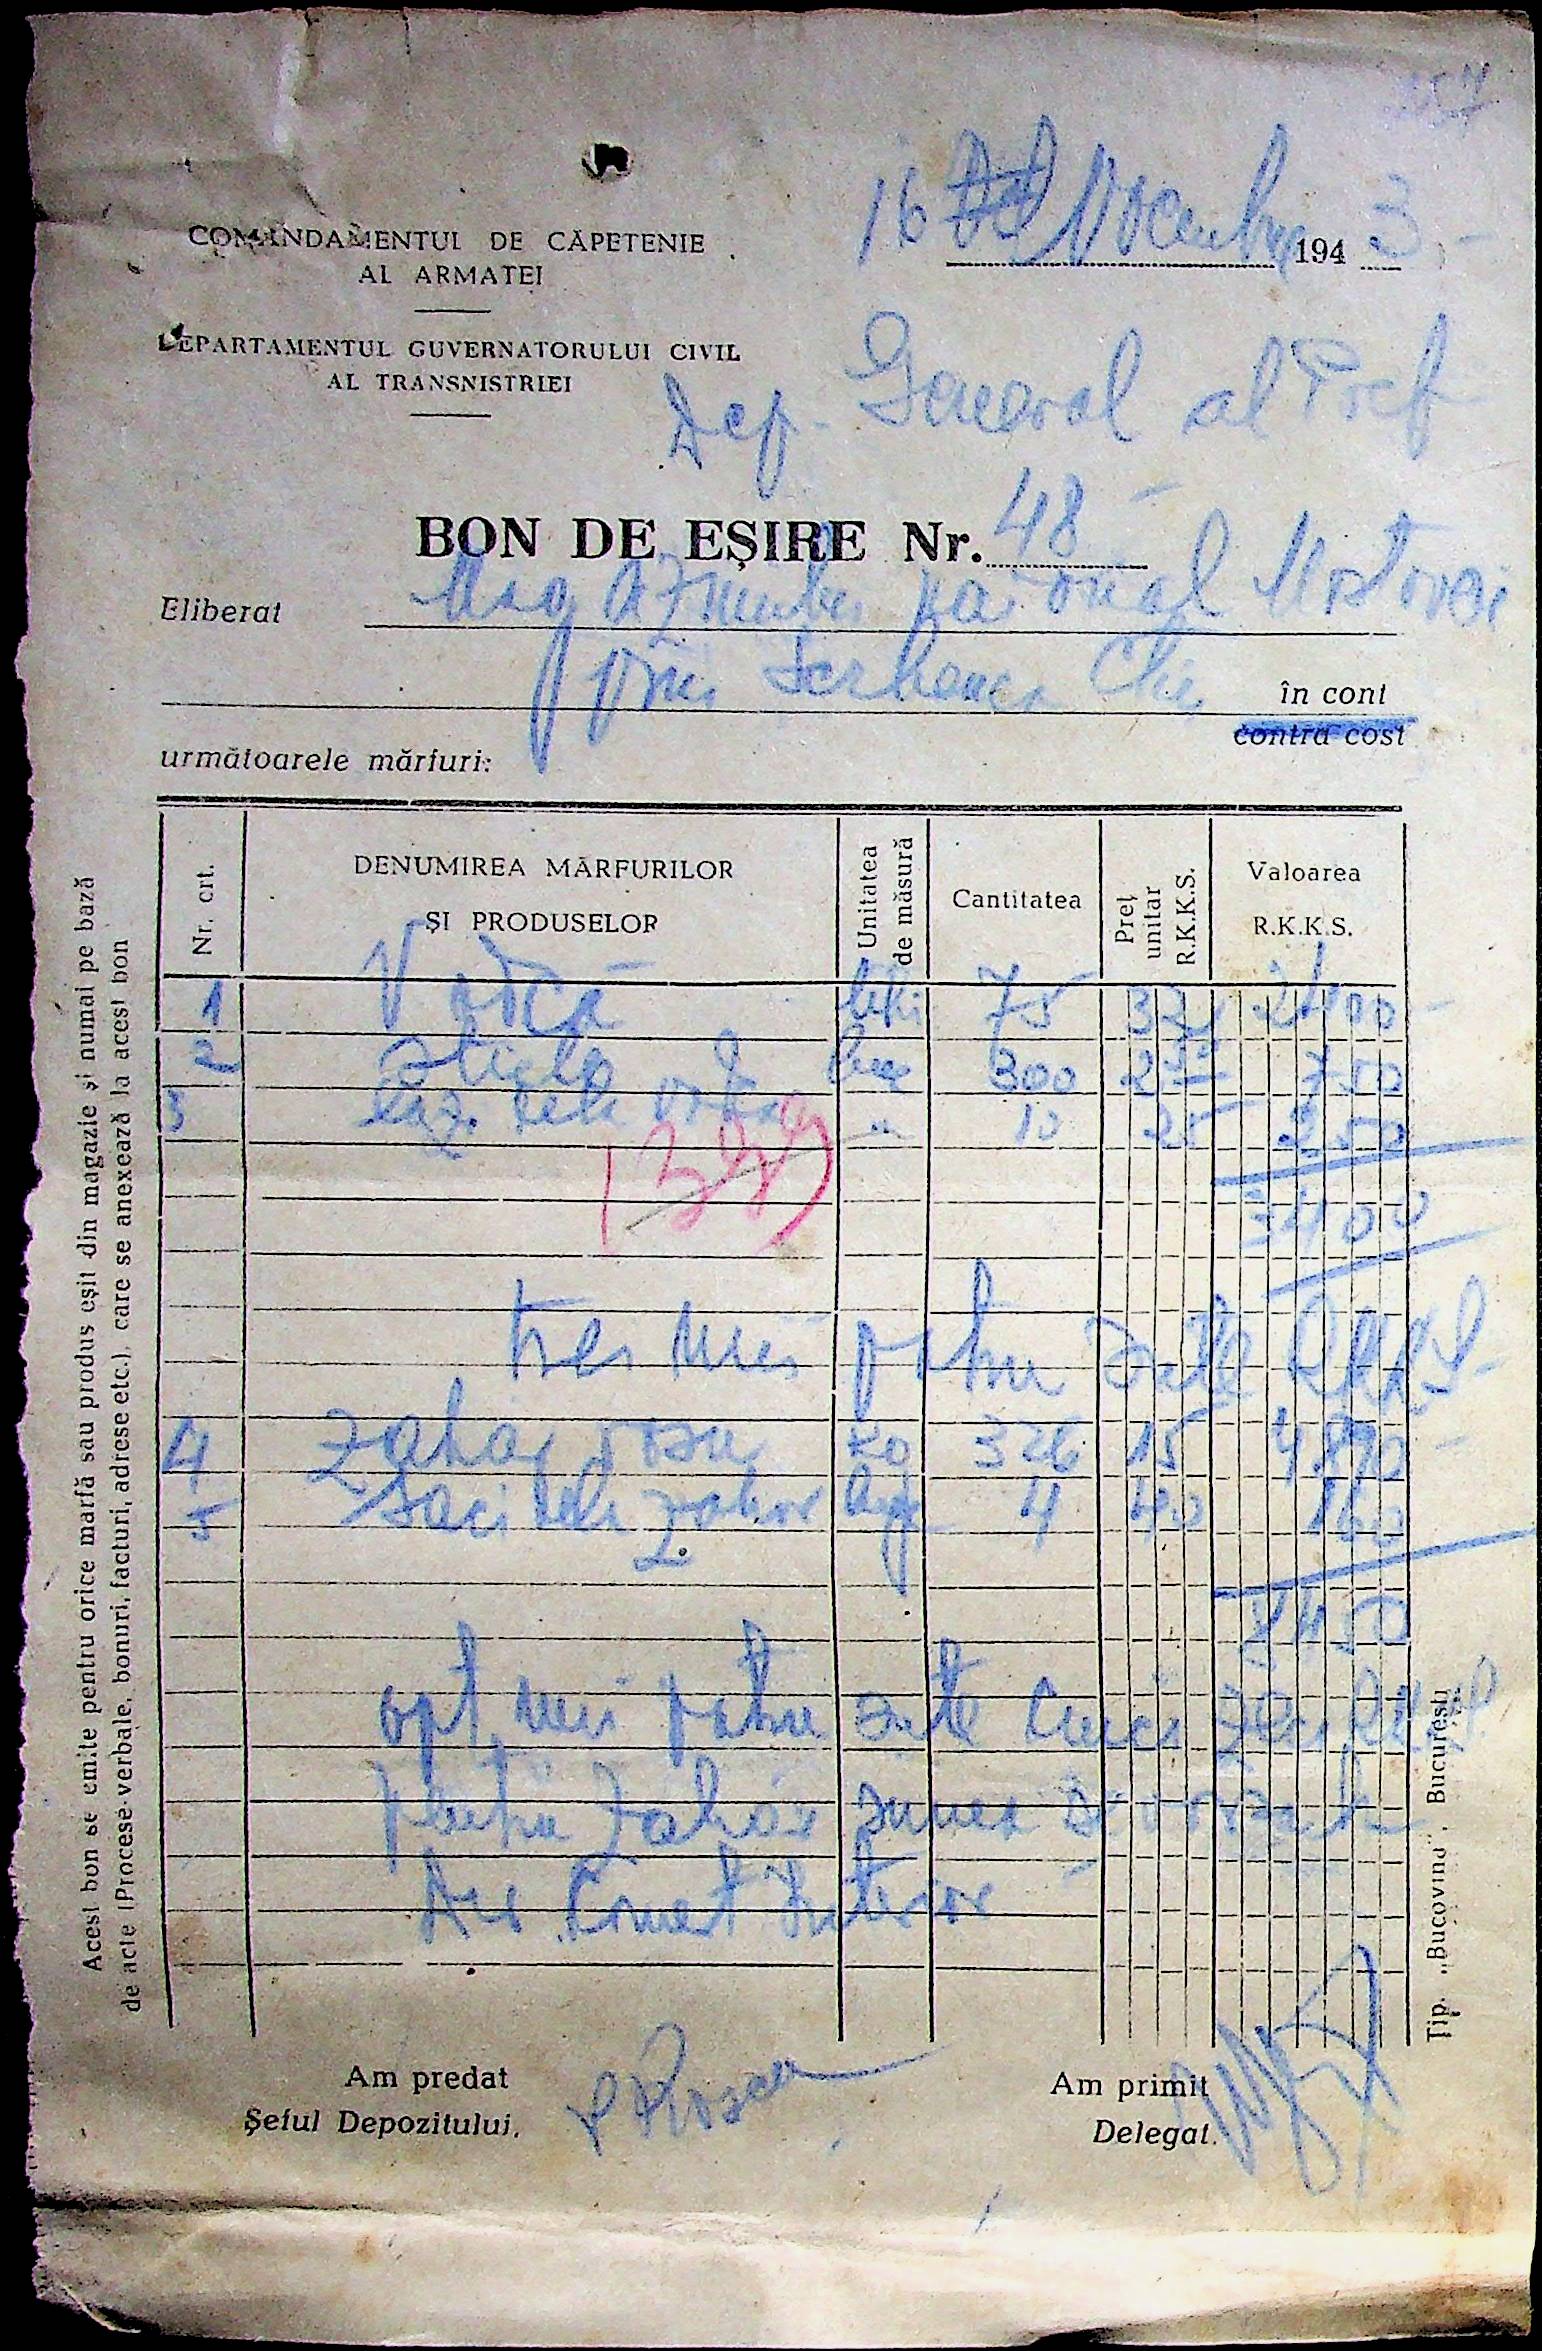 16 Nocembrie 1943
COMANDAMENTUL DE CĂPETENIE
AL ARMATEI
DEPARTAMENTUL GUVERNATORULUI CIVIL
AL TRANSNISTRIEI
Dep. General al Pref
BON DE EȘIRE Nr. 48
Eliberat Mag raional Mostovoi
prin în cont
contra cost
următoarele mărfuri:
Nr. crt. DENUMIREA MĂRFURILOR ȘI PRODUSELOR Unitatea de măsură Cantitatea Preț unitar R.K.K.S. Valoarea R.K.K.S.
1 Vodcă litri 75 32 2400
2 sticle buc 300 2.50 750
3 laz. dela vodca " 10 25 250
3400
trei mii patru sute RKKS
4 Zahar tosu kg 326 15 4.890
5 Saci dela zahar buc 4 40 160
8450
opt mii patru sute cinci zeci RKKS
pentru Zahar suma
Am predat
Șeful Depozitului,
Am primit
Delegat.
Acest bon se emite pentru orice marfă sau produs eșit din magazie și numai pe bază
de acte (Procese-verbale, bonuri, facturi, adrese etc.) care se anexează la acest bon
Tip. „Bucovina", București